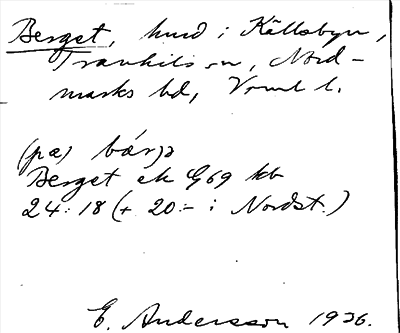 Berget, hmd i Källsbyn,
Trankils sn, Nord-
marks hd, Vrml l.
(pæ) bárjə
Berget ek G69 kb
24:18 (+ 20:- i Nordst.)
E. Andersson 1936.